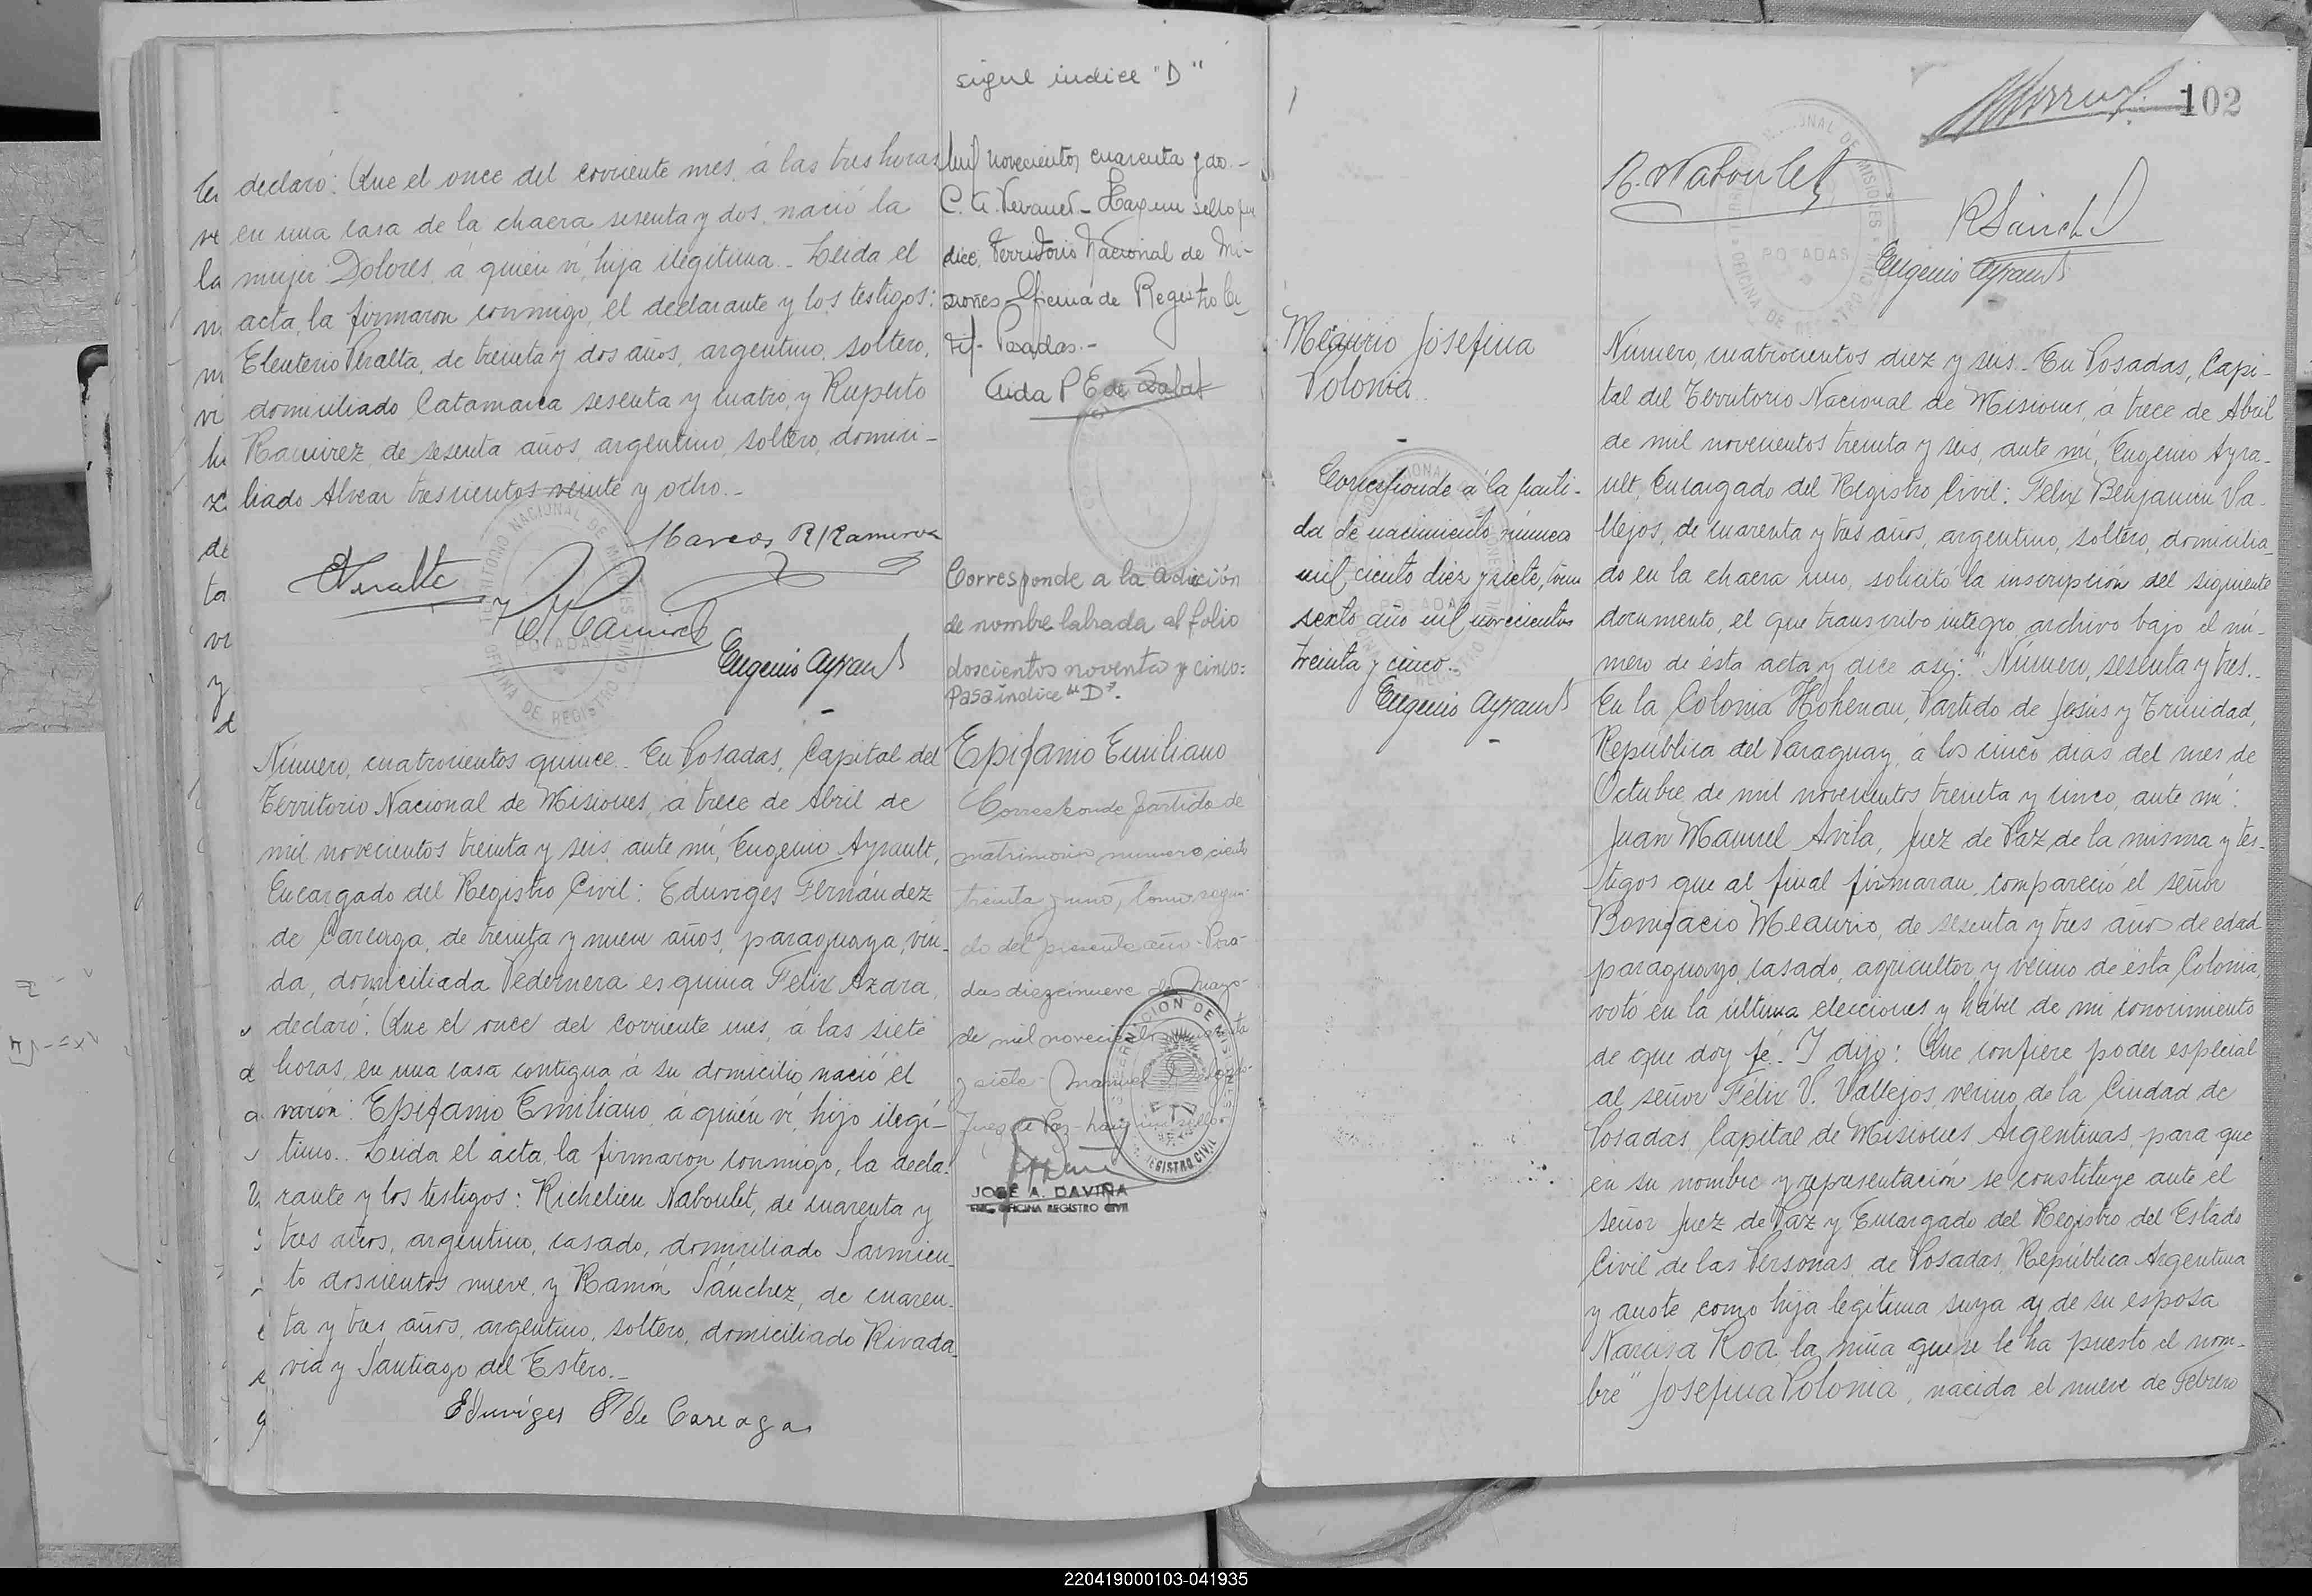 declaró: Que el once del corriente mes, á las tres horas
en una casa de la chacra sesenta y dos, nació la
mujer: Dolores, á quien ví, hija ilegítima.- Leida el
acta, la firmaron conmigo, el declarante y los testigos:
Eleuterio Peralta, de treinta y dos años, argentino, soltero,
domiciliado Catamarca sesenta y cuatro, y Ruperto
Ramirez, de sesenta años, argentino, soltero, domici-
liado Alvear trescientos veinte y ocho.-
Marcos R Ramirez
EPeralta
R Ramirez
Eugenio Ayrault
Número, cuatrocientos quince.- En Posadas, Capital del
Territorio Nacional de Misiones, á trece de Abril de
mil novecientos treinta y seis, ante mí, Eugenio Ayrault,
Encargado del Registro Civil: Eduviges Fernández
de Careaga, de treinta y nueve años, paraguaya, viu-
da, domiciliada Pedernera esquina Felix Azara,
declaró: Que el once del corriente mes, á las siete
horas, en una casa contigua á su domicilio nació el
varón: Epifanio Emiliano, á quién ví, hijo ilegí-
timo.- Leida el acta, la firmaron conmigo, la decla-
rante y los testigos: Richelieu Naboulet, de cuarenta y
tres años, argentino, casado, domiciliado Sarmien-
to doscientos nueve, y Ramón Sánchez, de cuaren-
ta y tres años, argentino, soltero, domiciliado Rivada-
via y Santiago del Estero.-
Eduviges F de Careaga
sigue indice "D"
mil novecientos cuarenta y do.-
Hay un sello que
dice, Territorio Nacional de Mi-
siones Oficina de Registro Ci-
vil- Posadas.-
Aida P E de Labat
Corresponde a la adición
de nombre labrada al folio
doscientos noventa y cinco:
Pasa índice "D".
Epifanio Emiliano
Corresponde partida de
matrimonio numero ciento
treinta y uno, tomo segun-
do del presente año. Posa-
das diezcinueve de Mayo
de mil novecientos
y siete- Manuel
Juez de Paz- hay un sello.
JOSÉ A. DAVIÑA
ENC. OFICINA REGISTRO CIVIL
102
R. Naboulet
RSánchez
Eugenio Ayrault
Meaurio Josefina
Polonia
Corresponde á la parti-
da de nacimiento número
mil ciento diez y siete, tomo
sexto año mil novecientos
treinta y cinco.-
Eugenio Ayrault
Número, cuatrocientos diez y seis.- En Posadas, Capi-
tal del Territorio Nacional de Misiones, á trece de Abril
de mil novecientos treinta y seis, ante mí, Eugenio Ayra-
ult, Encargado del Registro Civil: Félix Benjamin Va-
llejos, de cuarenta y tres años, argentino, soltero, domicilia-
do en la chacra uno, solicitó la inscripción del siguiente
documento, el que transcribo íntegro, archivo bajo el nú-
mero de ésta acta y dice asi: "Número, sesenta y tres.-
En la Colonia Hohenau, Partido de Jesús y Trinidad,
República del Paraguay, á los cinco dias del mes de
Octubre de mil novecientos treinta y cinco, ante mí:
Juan Manuel Avila, Juez de Paz de la misma y tes-
tigos que al final firmaran, compareció el señor
Bonifacio Meaurio, de sesenta y tres años de edad
paraguayo, casado, agricultor y vecino de ésta Colonia,
votó en la última elecciones y hábil de mi conocimiento
de que doy fé.- I dijo: Que confiere poder especial
al señor Félix V. Vallejos, vecino de la Ciudad de
Posadas, Capital de Misiones Argentinas, para que
en su nombre y representación se constituye ante el
señor Juez de Paz y Encargado del Registro del Estado
Civil de las Personas, de Posadas, República Argentina
y anote como hija legítima suya y de su esposa
Narcisa Roa, la niña que se le ha puesto el nom-
bre "Josefina Polonia", nacida el nueve de Febrero
220419000103-041935